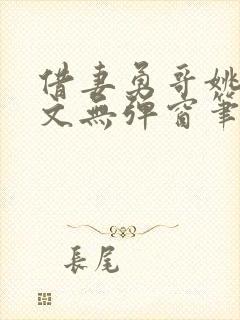 借妻勇哥姚
文無彈窗筆
長尾